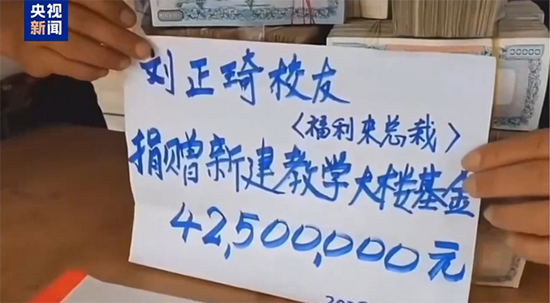 央视
新闻
刘正琦校友
<福利来总裁>
捐赠新建教学大楼基金
42,500,000元